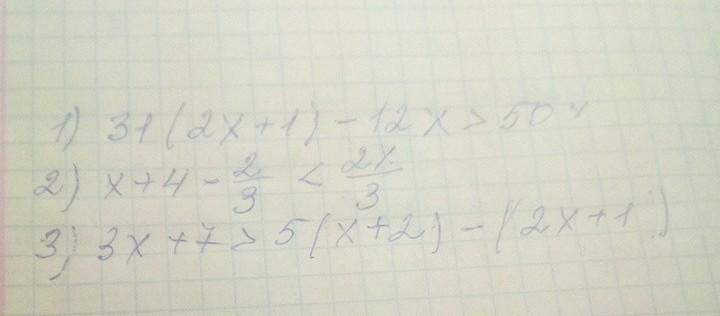 1) 31(2x+1)-12x>50x
2) x+4-2/3 < 2x/3
3) 3x+7>5(x+2)-(2x+1)